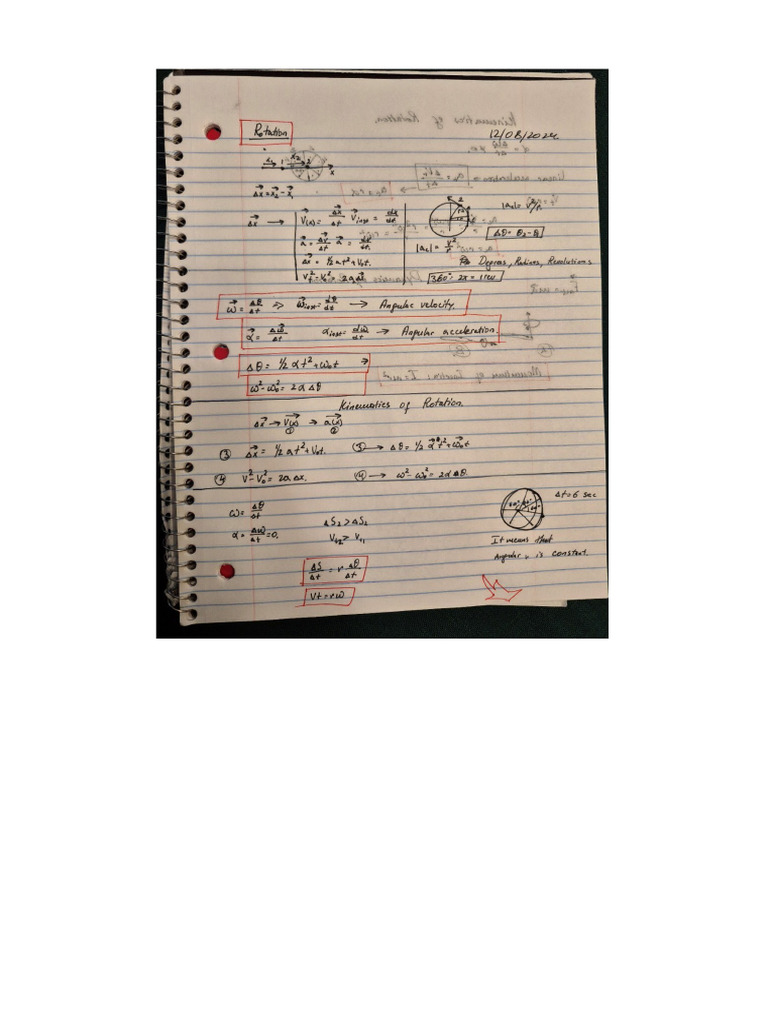 Rotation
12/08/2024
Δx = x₂ - x₁
|aᴄ| = v²/r
Δx → V(x) = Δx/Δt Vinst = dx/dt
a = Δv/Δt a = dv/dt
Δθ = θ₂ - θ₁
|aᴄ| = v²/r
Δx = 1/2 at² + V₀t.
Degrees, Radians, Revolutions
V² - V₀² = 2aΔx
360° = 2π = 1 rev
ω = Δθ/Δt => ωinst = dθ/dt → Angular velocity.
α = Δω/Δt αinst = dω/dt → Angular acceleration.
Δθ = 1/2 αt² + ω₀t →
ω² - ω₀² = 2αΔθ
Kinematics of Rotation.
Δx → V(x) → a(x)
① ②
③ Δx = 1/2 at² + V₀t. ③ → Δθ = 1/2 αt² + ω₀t
④ V² - V₀² = 2aΔx. ④ → ω² - ω₀² = 2αΔθ.
Δt = 6 sec
ω = Δθ/Δt
ΔS₂ > ΔS₁
α = Δω/Δt = 0.
Vt₂ > Vt₁
It means that
Angular v is constant.
ΔS/Δt = r Δθ/Δt
Vt = rω